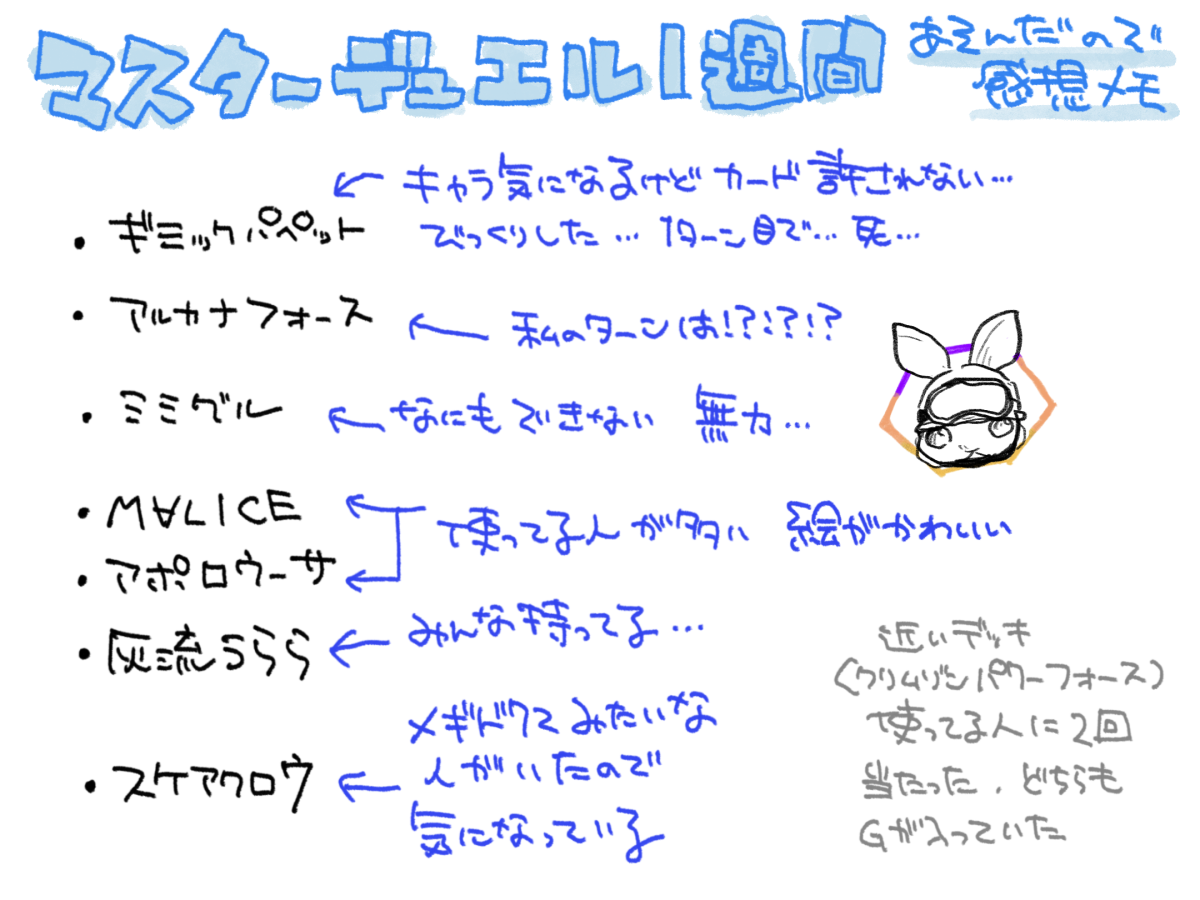 マスターデュエル1週間
あそんだので
感想メモ
・ギミックパペット
← キャラ気になるけど カード許されない…
びっくりした… 1ターン目で… 死…
・アルカナフォース
← 私のターンは!?!?!?
・ミミグル
← なにもできない 無力…
・M∀LICE
・アポロウーサ
← 使ってる人が多い 絵がかわいい
・灰流うらら
← みんな持ってる…
・スケアクロウ
← メギド72みたいな
人がいたので
気になっている
近いデッキ
(クリムゾンパワーフォース)
使ってる人に2回
当たった、どちらも
Gが入っていた